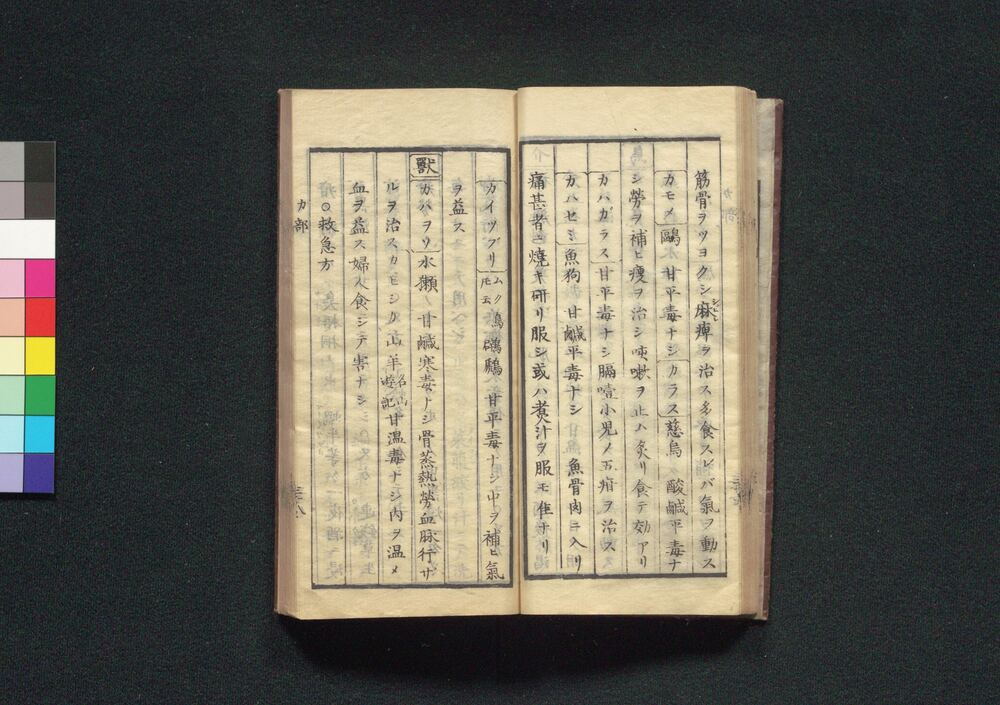 筋骨ヲツヨクシ麻痺ヲ治ス多食スレバ氣ヲ動ス
カモメ 鷗 甘平毒ナシカラス 慈烏 酸鹹平毒ナ
シ勞ヲ補ヒ瘦ヲ治シ咳嗽ヲ止ハ炙リ食テ効アリ
カハガラス 甘平毒ナシ膈噎小児ノ五疳ヲ治ス
カハセミ 魚狗 甘鹹平毒ナシ 魚骨肉ニ入リ
痛甚者ニ燒キ研リ服シ或ハ煮汁ヲ服モ佳ナリ
カイツブリ ムク鳥 モ云 鸊鷉 甘平毒ナシ中ヲ補ヒ氣
ヲ益ス
獸 カハヲソ 水獺 甘鹹寒毒ナシ骨蒸熱勞血脉行ザ
ルヲ治スカモシカ 山羊 名山遊記 甘温毒ナシ内ヲ温メ
血ヲ益ス婦人食シテ害ナシ
○救急方
カ部